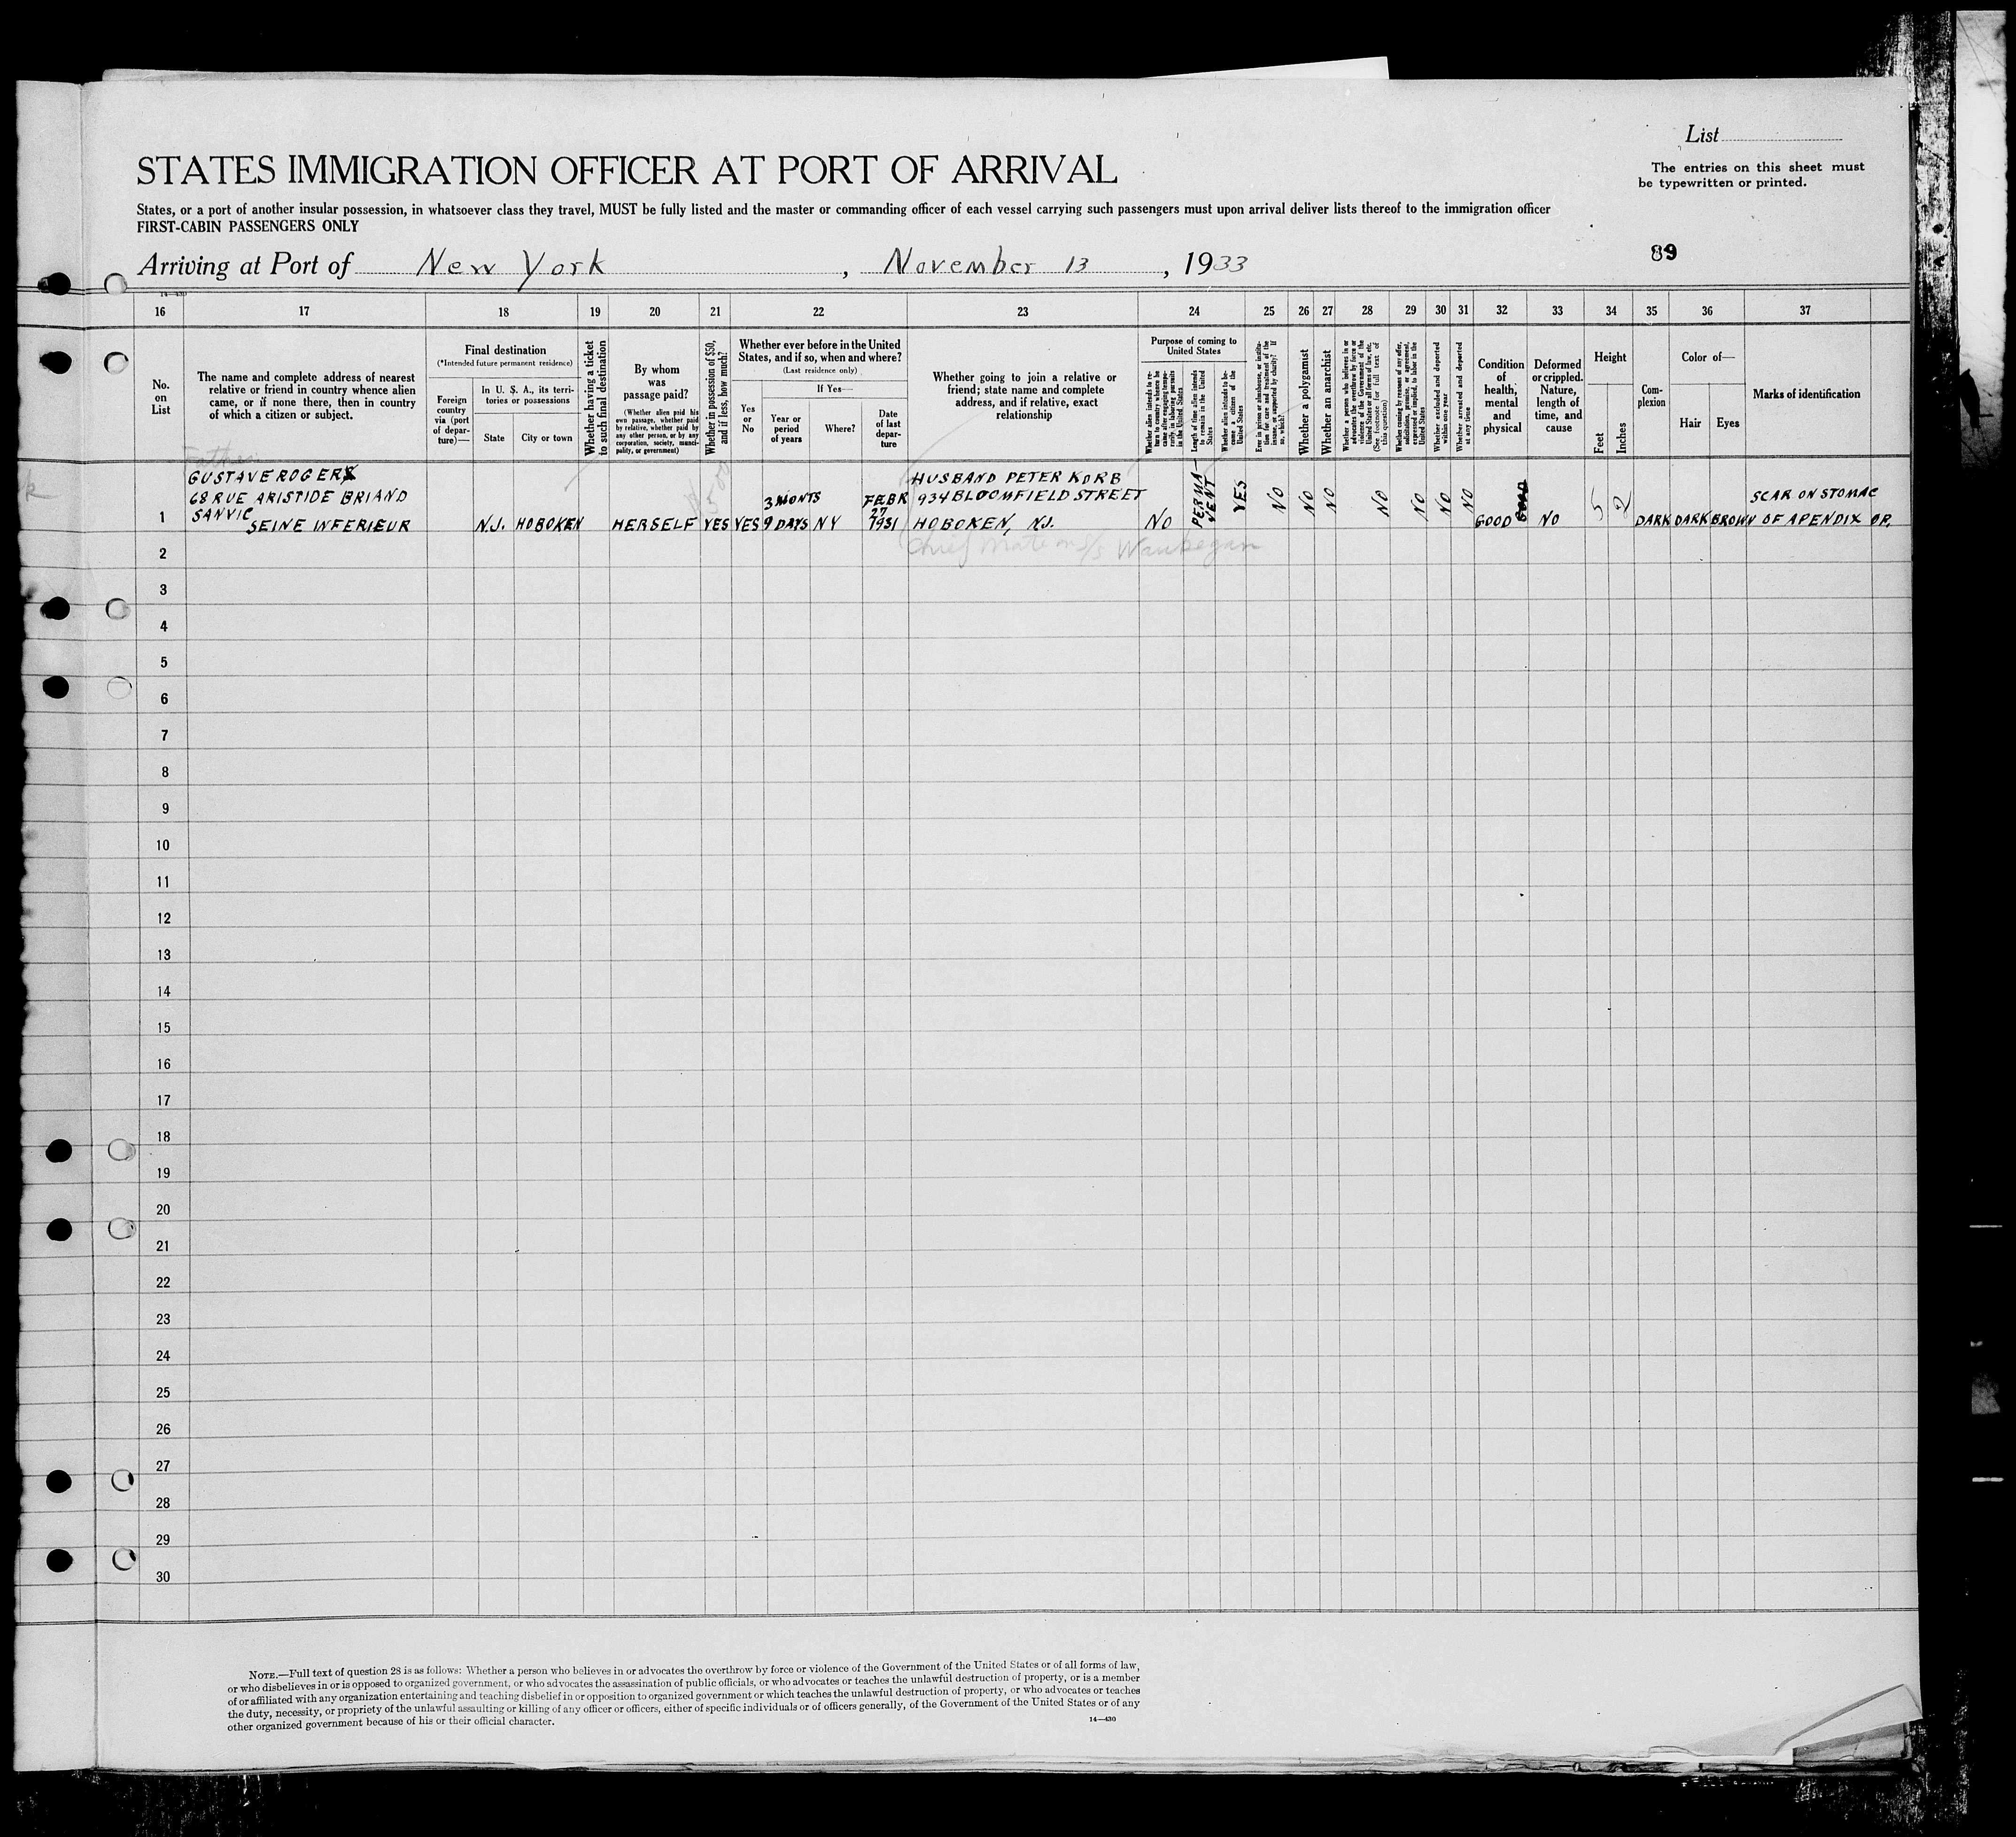 List
STATES IMMIGRATION OFFICER AT PORT OF ARRIVAL
The entries on this sheet must
be typewritten or printed.
States, or a port of another insular possession, in whatsoever class they travel, MUST be fully listed and the master or commanding officer of each vessel carrying such passengers must upon arrival deliver lists thereof to the immigration officer
FIRST-CABIN PASSENGERS ONLY
89
Arriving at Port of New York, November 13, 1933
14—430
16 17 18 19 20 21 22 23 24 25 26 27 28 29 30 31 32 33 34 35 36 37
No.
on
List
The name and complete address of nearest
relative or friend in country whence alien
came, or if none there, then in country
of which a citizen or subject.
Final destination
(*Intended future permanent residence)
Foreign
country
via (port
of depar-
ture)—
In U. S. A., its terri-
tories or possessions
State
City or town
Whether having a ticket
to such final destination
By whom
was
passage paid?
(Whether alien paid his
own passage, whether paid
by relative, whether paid by
any other person, or by any
corporation, society, munici-
pality, or government)
Whether in possession of $50,
and if less, how much?
Whether ever before in the United
States, and if so, when and where?
(Last residence only)
Yes
or
No
If Yes—
Year or
period
of years
Where?
Date
of last
depar-
ture
Whether going to join a relative or
friend; state name and complete
address, and if relative, exact
relationship
Purpose of coming to
United States
Whether alien intends to re-
turn to country whence he
came after engaging tempo-
rarily in laboring pursuits
in the United States
Length of time alien intends
to remain in the United
States
Whether alien intends to be-
come a citizen of the
United States
Ever in prison or almshouse, or institu-
tion for care and treatment of the
insane, or supported by charity? If
so, which?
Whether a polygamist
Whether an anarchist
Whether a person who believes in or
advocates the overthrow by force or
violence of the Government of the
United States or all forms of law, etc.
(See footnote for full text of
this question)
Whether coming by reasons of any offer,
solicitation, promise, or agreement,
expressed or implied, to labor in the
United States
Whether excluded and deported
within one year
Whether arrested and deported
at any time
Condition
of
health,
mental
and
physical
Deformed
or crippled.
Nature,
length of
time, and
cause
Height
Feet
Inches
Com-
plexion
Color of—
Hair
Eyes
Marks of identification
Father
GUSTAVE ROGER
68 RUE ARISTIDE BRIAND
SANVIC
SEINE INFERIEUR
1
N.J.
HOBOKEN
HERSELF
$500
YES
YES
3 MONTS
9 DAYS
NY
FEBR
27
1931
HUSBAND PETER KORB
934 BLOOMFIELD STREET
HOBOKEN, N.J.
Chief Mate on S/S Waukegan
NO
PERMA-
NENT
YES
NO
NO
NO
NO
NO
NO
NO
GOOD
NO
5
2
DARK
DARK
BROWN
SCAR ON STOMAC
OF APENDIX OP.
2
3
4
5
6
7
8
9
10
11
12
13
14
15
16
17
18
19
20
21
22
23
24
25
26
27
28
29
30
NOTE.—Full text of question 28 is as follows: Whether a person who believes in or advocates the overthrow by force or violence of the Government of the United States or of all forms of law,
or who disbelieves in or is opposed to organized government, or who advocates the assassination of public officials, or who advocates or teaches the unlawful destruction of property, or is a member
of or affiliated with any organization entertaining and teaching disbelief in or opposition to organized government or which teaches the unlawful destruction of property, or who advocates or teaches
the duty, necessity, or propriety of the unlawful assaulting or killing of any officer or officers, either of specific individuals or of officers generally, of the Government of the United States or of any
other organized government because of his or their official character.
14—430